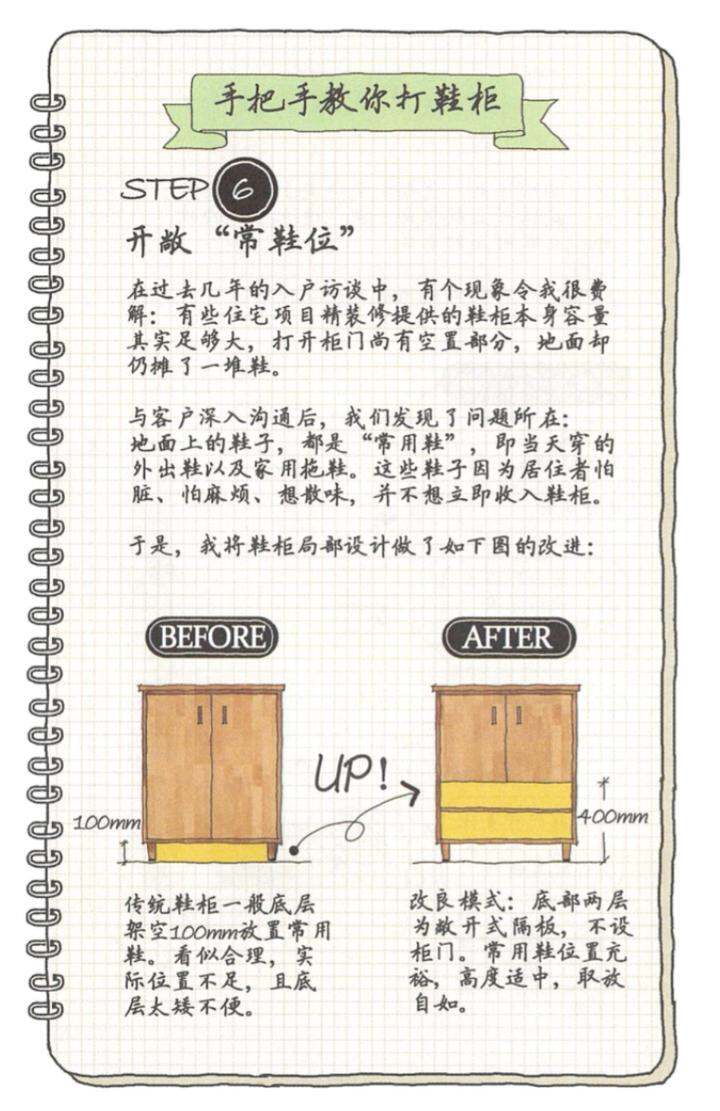 手把手教你打鞋柜
STEP 6
开敞“常鞋位”
在过去几年的入户访谈中，有个现象令我很费
解：有些住宅项目精装修提供的鞋柜本身容量
其实足够大，打开柜门尚有空置部分，地面却
仍摊了一堆鞋。
与客户深入沟通后，我们发现了问题所在：
地面上的鞋子，都是“常用鞋”，即当天穿的
外出鞋以及家用拖鞋。这些鞋子因为居住者怕
脏、怕麻烦、想散味，并不想立即收入鞋柜。
于是，我将鞋柜局部设计做了如下图的改进：
BEFORE
AFTER
UP!
100mm
400mm
传统鞋柜一般底层
架空100mm放置常用
鞋。看似合理，实
际位置不足，且底
层太矮不便。
改良模式：底部两层
为敞开式隔板，不设
柜门。常用鞋位置充
裕，高度适中，取放
自如。